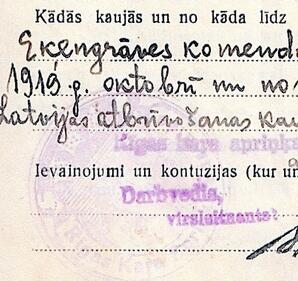 Kādās kaujās un no kāda līdz
Ekengrāves komend
1919.g. oktobrī un no
Latvijas atbrīvošanas kau
Rīgas kara apriņķa
Ievainojumi un kontuzijas (kur un
Darbvedis,
virsleitnants: